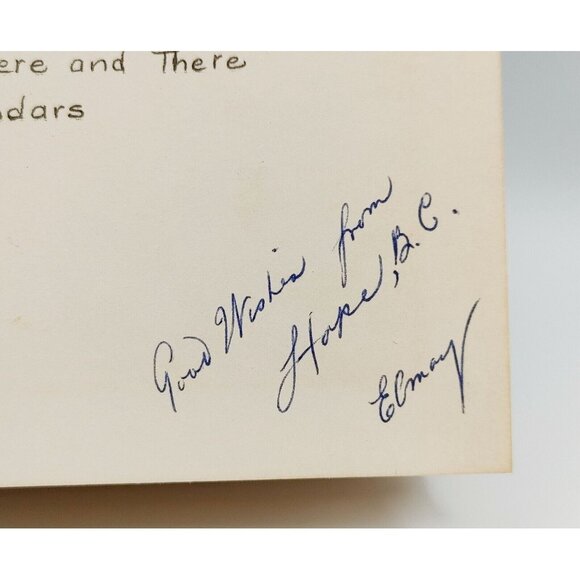 ere and There
dars
Good Wishes from
Hope, B.C.
Elmay